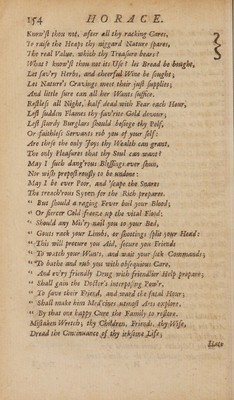 154 HORACE.
Know'st thou not, after all thy racking Cares,
To raise the Heaps thy niggard Nature spares,
The real Value, which thy Treasure bears?
What! know'st thou not its Use? let Bread be bought,
Eat sav'ry Herbs, and cheerful Wine be sought;
Let Nature's Cravings meet their just supplies;
And little sure can all her Wants suffice.
Restless all Night, half dead with Fear each Hour,
Lest sudden Flames thy fav'rite Gold devour;
Lest sturdy Burglars should besiege thy Pelf,
Or faithless Servants rob you of your self:
Are these the only Joys thy Wealth can grant,
The only Pleasures that thy Soul can want?
May I such dang'rous Blessings ever shun,
Nor wish prepost'rously to be undone:
May I be ever Poor, and 'scape the Snares
Tha treach'rous for the Rich prepares.
“ But should a raging Fever boil your Blood;
“ Or fiercer Cold freeze up the vital Flood;
“ Should any Mis'ry nail you to your Bed,
“ Gouts rack your Limbs, or shootings split your Head:
“ This will procure you Aid, secure you Friends
“ To watch your Wants, and wait your sick Commands;
“ To bathe and rub you with obsequious Care,
“ And ev'ry friendly Drug with friendlier Help prepare;
“ Shall gain the Doctor's interposing Pow'r,
“ To save their Friend, and ward the fatal Hour;
“ Shall make him Med'cines utmost Arts explore,
“ By that one happy Cure the Family to restore.
Mistaken Wretch; thy Children, Friends, thy Wife,
Dread the Continuance of thy irksome Life;